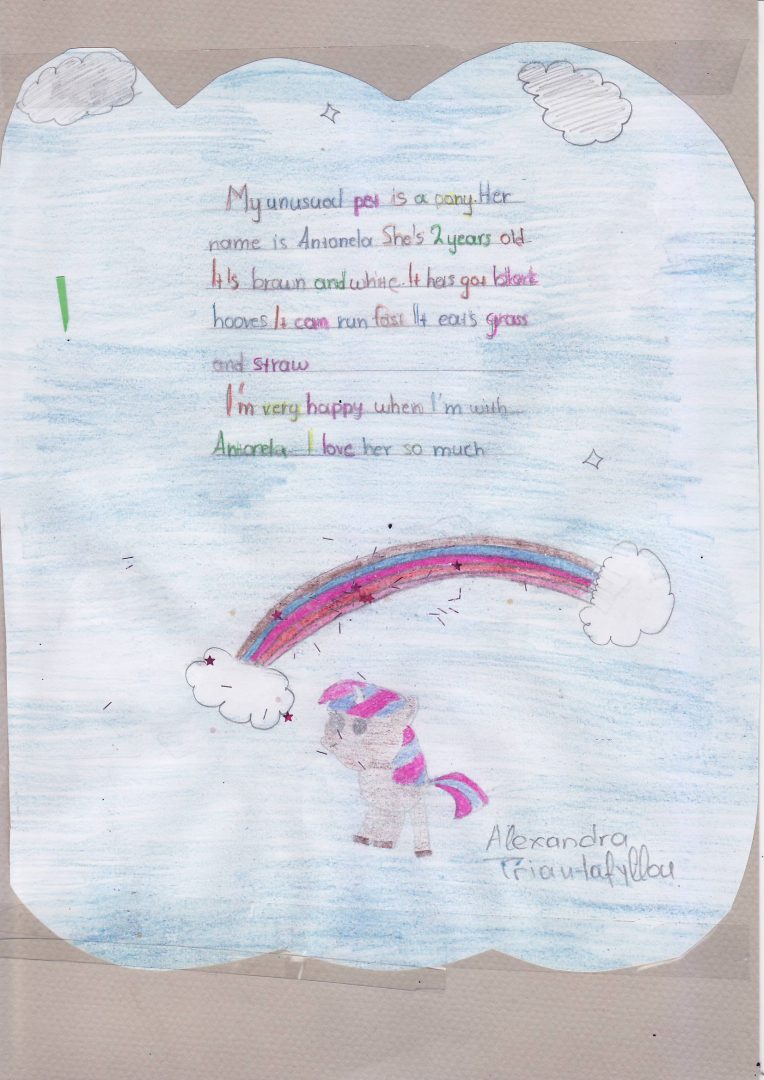 My unusual pet is a pony. Her
name is Antonela She's 2 years old
It's brown and white. It has got black
hooves It can run fast It eats grass
and straw
I'm very happy when I'm with
Antonela I love her so much
Alexandra
Triantafyllou